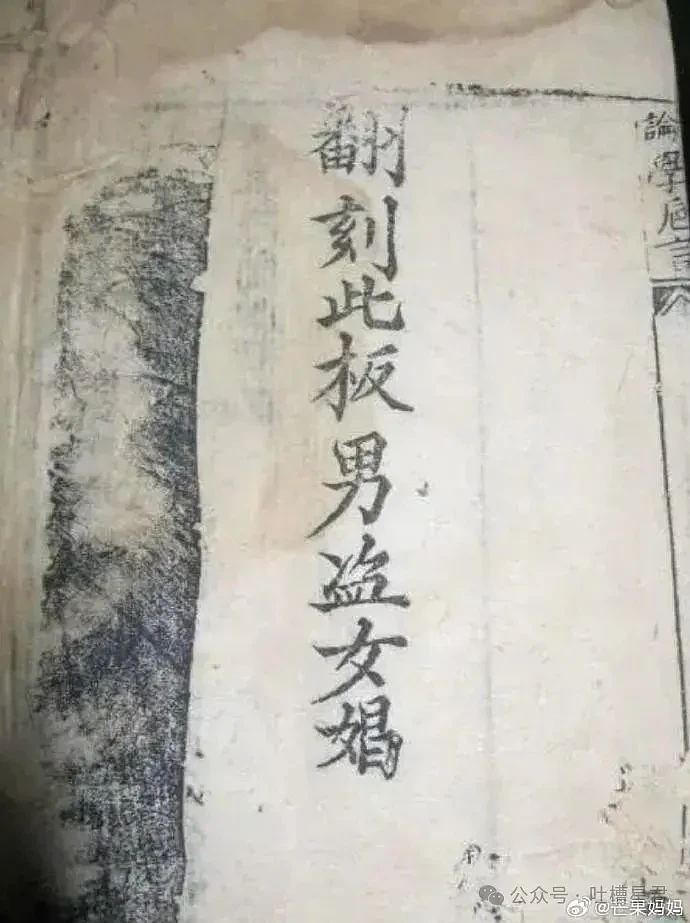 論學巵言
翻刻此板男盗女娼
公众号·吐槽星君
@芒果妈妈